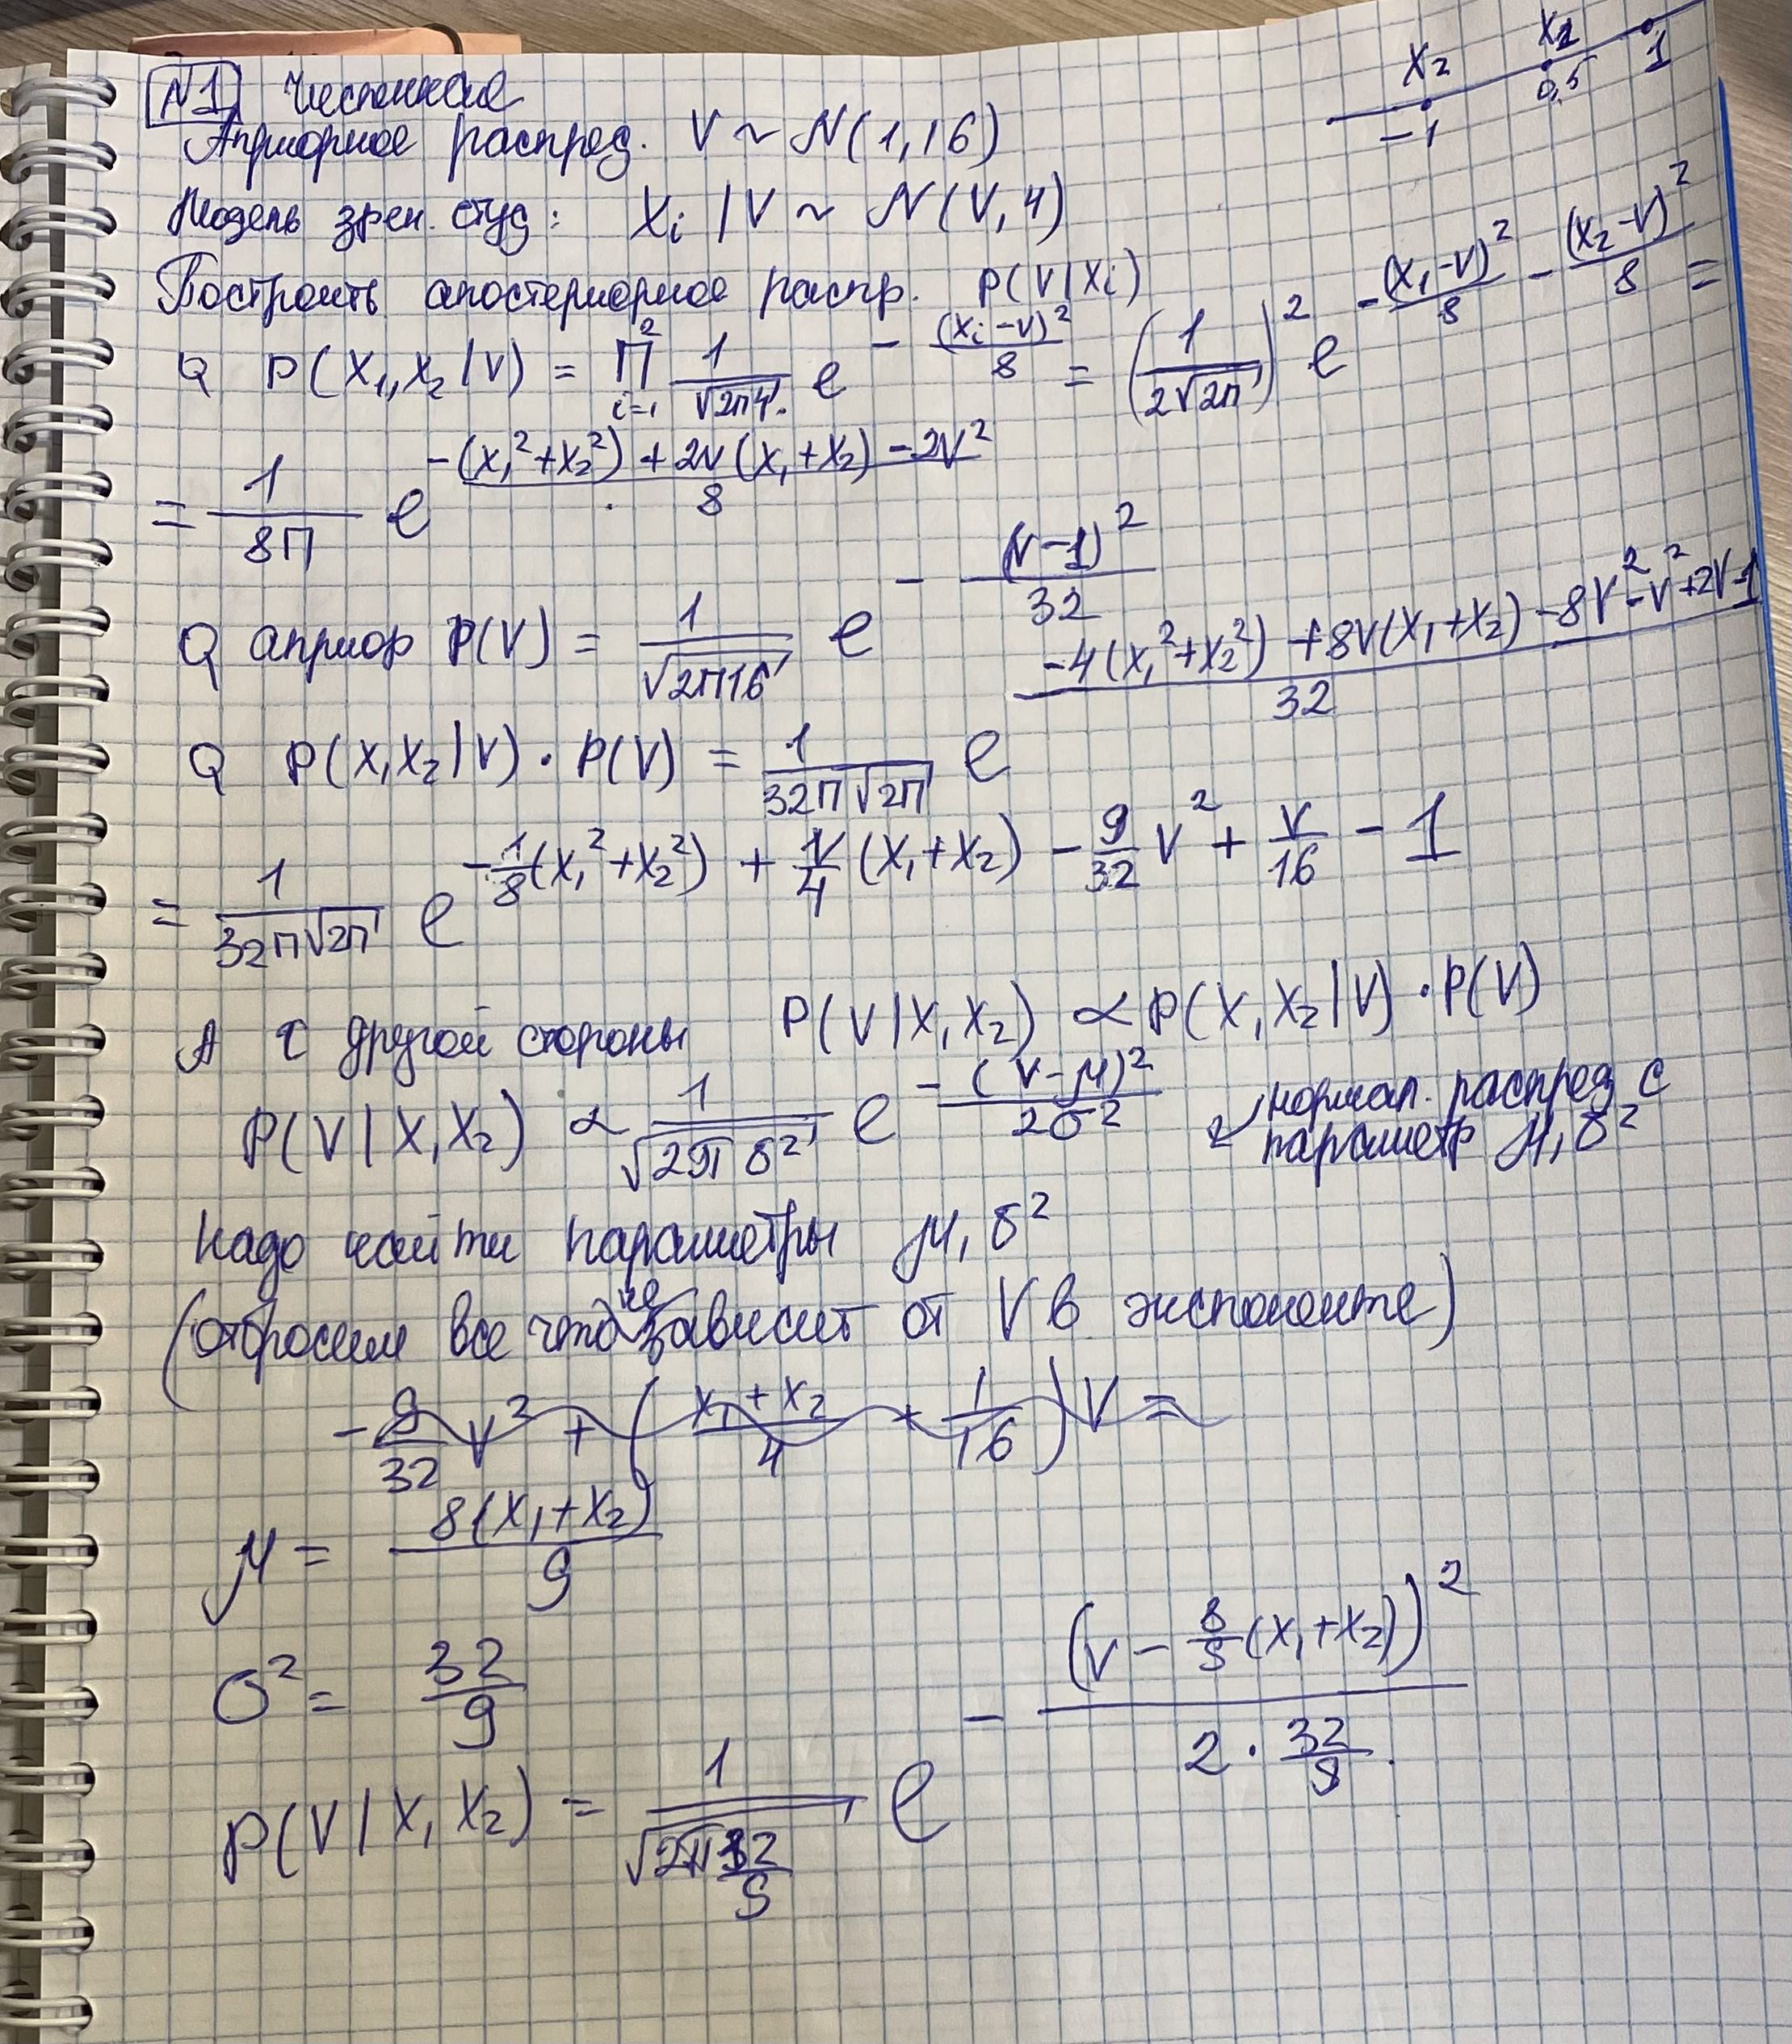 X₂ X₁ 1
−1 0,5
N1 Численная
Априорное распред. V ~ N(1,16)
Модель зрен. студ: Xᵢ | V ~ N(V, 4)
Построить апостериорное распр. P(V|Xᵢ)
Q P(X₁,X₂|V) = ∏_{i=1}^{2} 1/√(2π4) e^{−(xᵢ−V)²/8} = (1/(2√(2π)))² e^{−(x₁−V)²/8 − (x₂−V)²/8} =
= 1/(8π) e^{(−(x₁²+x₂²)+2V(x₁+x₂)−2V²)/8}
Q априор P(V) = 1/√(2π16) e^{−(V−1)²/32}
Q P(X₁X₂|V)·P(V) = 1/(32π√(2π)) e^{(−4(x₁²+x₂²)+8V(x₁+x₂)−8V²−V²+2V−1)/32}
= 1/(32π√(2π)) e^{−1/8(x₁²+x₂²) + V/4(x₁+x₂) − 9/32 V² + V/16 − 1}
А с другой стороны P(V|X₁X₂) ∝ P(X₁X₂|V)·P(V)
P(V|X₁X₂) ∝ 1/√(2πσ²) e^{−(V−μ)²/(2σ²)} ↙ нормал. распред с
параметр μ, σ²
Надо найти параметры μ, σ²
(отбросим все что не зависит от V в экспоненте)
−9/32 V² + ((x₁+x₂)/4 + 1/16)V =
μ = 8(x₁+x₂)/9
σ² = 32/9
P(V|X₁X₂) = 1/√(2π 32/9) e^{−(V − 8/9(x₁+x₂))²/(2·32/9)}